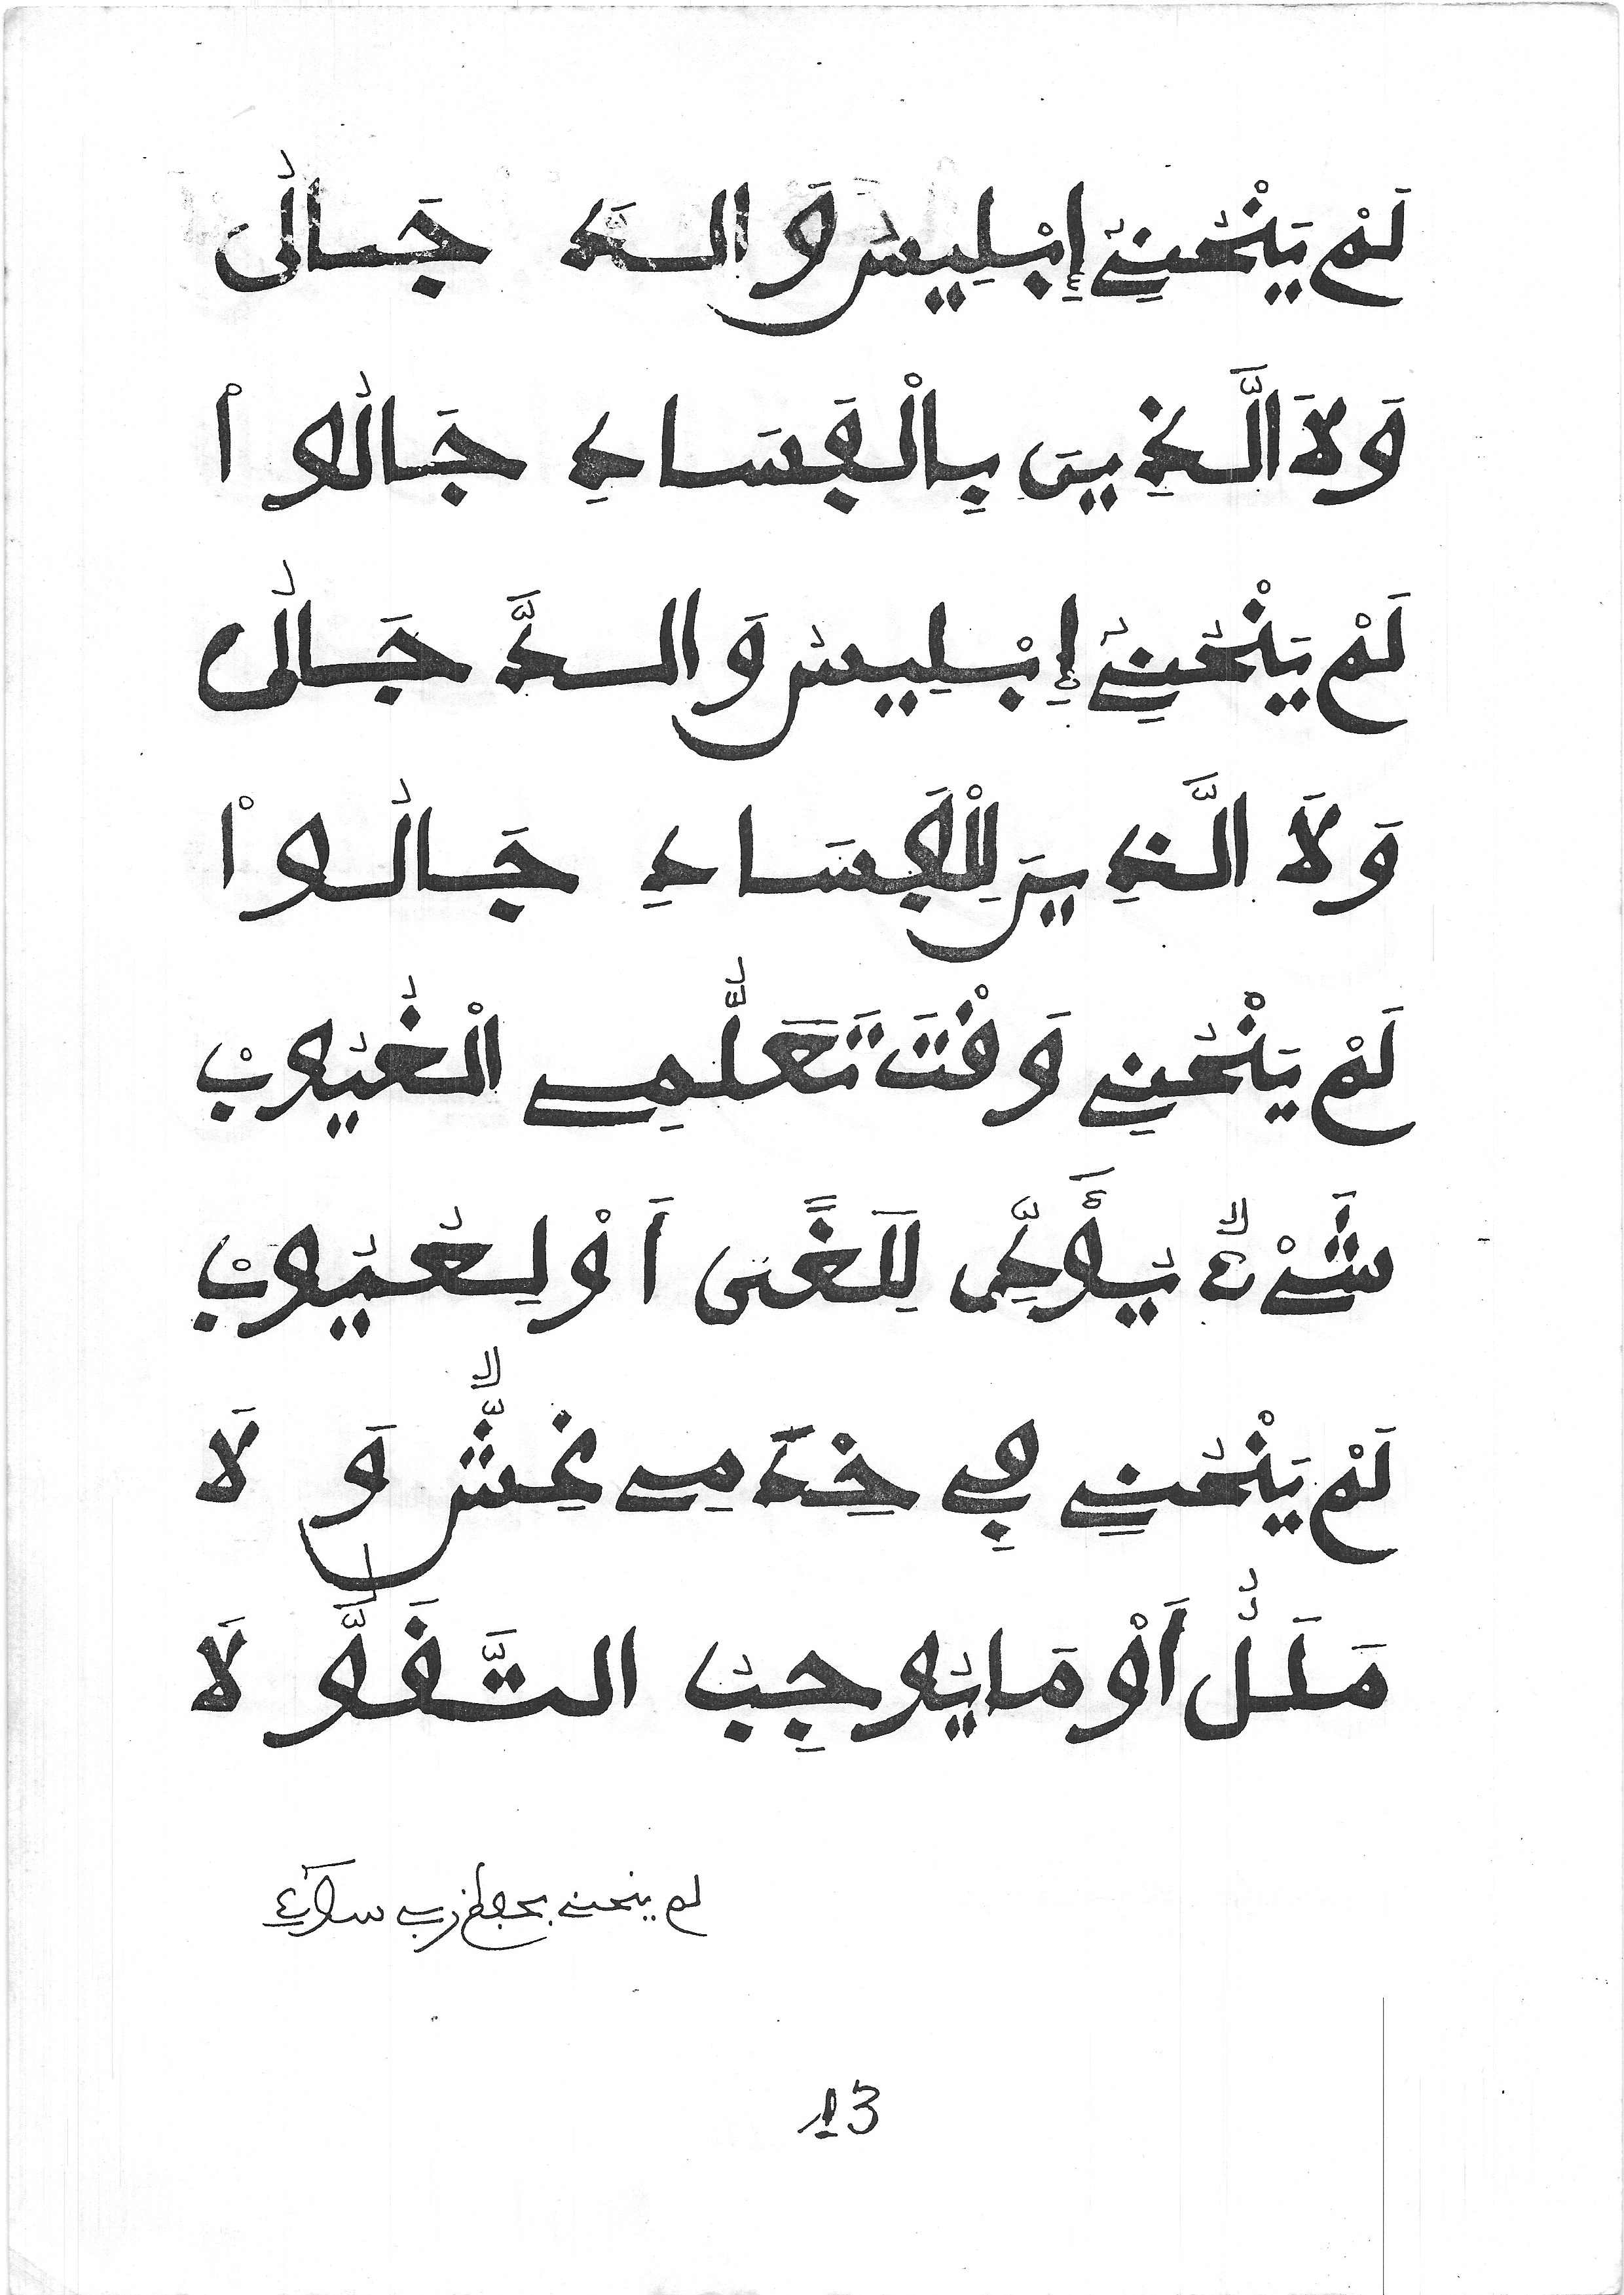 لَمْ يَنْحُنِے إِبْلِيسُ وَالدَّ جَالُ
وَلاَ الَّذِينَ بِالْفَسَادِ جَالُوا
لَمْ يَنْحُنِے إِبْلِيسُ وَالدَّ جَالُ
وَلاَ الَّذِينَ لِلْفَسَادِ جَالُوا
لَمْ يَنْحُنِے وَقْتَ تَعَلُّمِے الْغُيُوبْ
شَےْءٌ يُؤَدِّے لِلَغًى أَوْ لِعُيُوبْ
لَمْ يَنْحُنِے فِے خِدْمَتِے غِشٌّ وَلَا
مَلَلٌ أَوْ مَا يُوجِبُ التَّقَوُّلَا
لم ينحنے بحفظ ربے
13